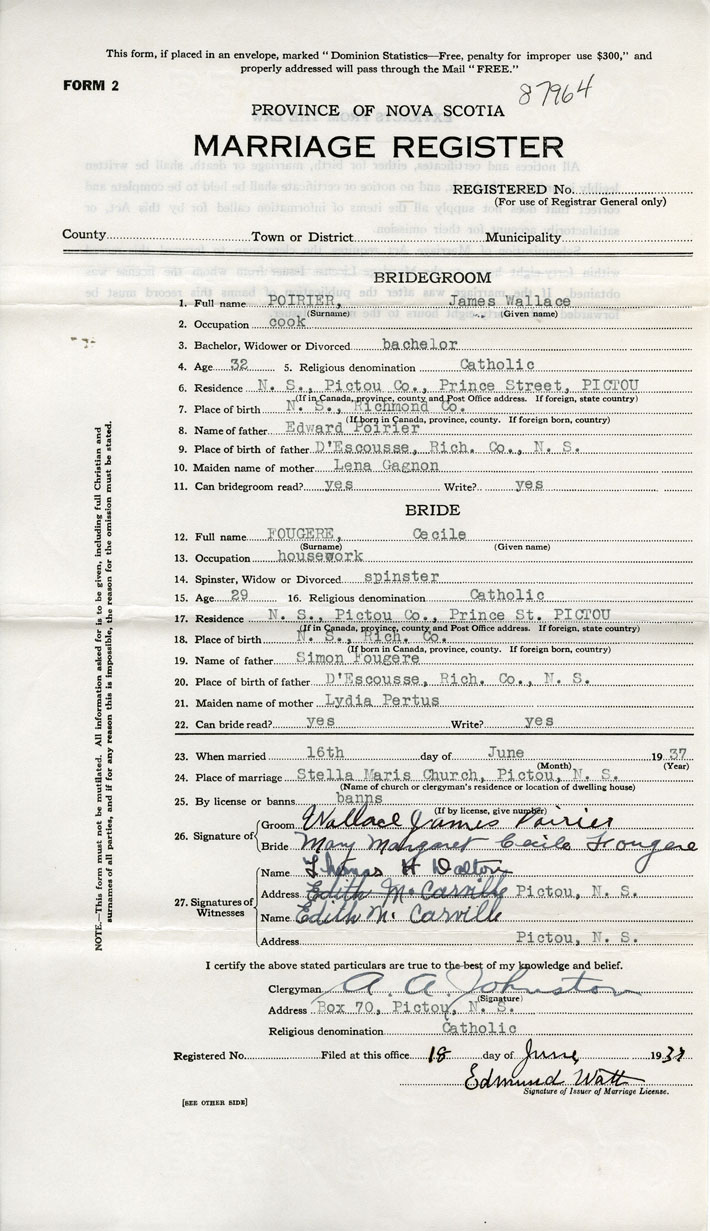 This form, if placed in an envelope, marked "Dominion Statistics—Free, penalty for improper use $300," and
properly addressed will pass through the Mail "FREE."
FORM 2
87964
PROVINCE OF NOVA SCOTIA
MARRIAGE REGISTER
REGISTERED No.
(For use of Registrar General only)
County Town or District Municipality
BRIDEGROOM
1. Full name POIRIER, James Wallace
(Surname) (Given name)
2. Occupation cook
3. Bachelor, Widower or Divorced bachelor
4. Age 32 5. Religious denomination Catholic
6. Residence N. S., Pictou Co., Prince Street, PICTOU
(If in Canada, province, county and Post Office address. If foreign, state country)
7. Place of birth N. S., Richmond Co.
(If born in Canada, province, county. If foreign born, country)
8. Name of father Edward Poirier
9. Place of birth of father D'Escousse, Rich. Co., N. S.
10. Maiden name of mother Lena Gagnon
11. Can bridegroom read? yes Write? yes
BRIDE
12. Full name FOUGERE, Cecile
(Surname) (Given name)
13. Occupation housework
14. Spinster, Widow or Divorced spinster
15. Age 29 16. Religious denomination Catholic
17. Residence N. S., Pictou Co., Prince St. PICTOU
(If in Canada, province, county and Post Office address. If foreign, state country)
18. Place of birth N. S., Rich. Co.
(If born in Canada, province, county. If foreign born, country)
19. Name of father Simon Fougere
20. Place of birth of father D'Escousse, Rich. Co., N. S.
21. Maiden name of mother Lydia Pertus
22. Can bride read? yes Write? yes
23. When married 16th day of June 1937
(Month) (Year)
24. Place of marriage Stella Maris Church, Pictou, N. S.
(Name of church or clergyman's residence or location of dwelling house)
25. By license or banns banns
(If by license, give number)
26. Signature of
Groom Wallace James Poirier
Bride Mary Margaret Cecile Fougere
27. Signatures of Witnesses
Name Thomas H Dalton
Address Edith McCarville Pictou, N. S.
Name Edith McCarville
Address Pictou, N. S.
I certify the above stated particulars are true to the best of my knowledge and belief.
Clergyman A. A. Johnston
(Signature)
Address Box 70, Pictou, N. S.
Religious denomination Catholic
Registered No. Filed at this office 18 day of June 1937
Edmund Watt
Signature of Issuer of Marriage License.
[SEE OTHER SIDE]
NOTE.—This form must not be mutilated. All information asked for is to be given, including full Christian and
surnames of all parties, and if for any reason this is impossible, the reason for the omission must be stated.